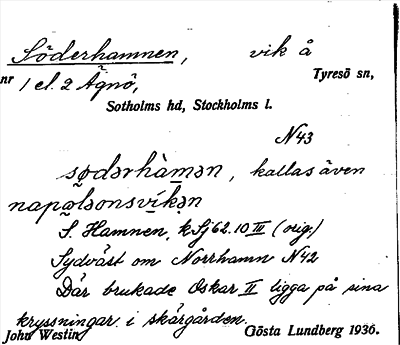 Söderhamnen, vik å
nr 1 el. 2 Ägnö, Tyresö sn,
Sotholms hd, Stockholms l.
N43
sø̱dərhàmən, kallas även
napo̱leonsvi̱kən
S. Hamnen, k Sj 62. 10 III (orig.)
Sydväst om Norrhamn N42
Där brukade Oskar II ligga på sina
kryssningar i skärgården.
John Westin Gösta Lundberg 1936.